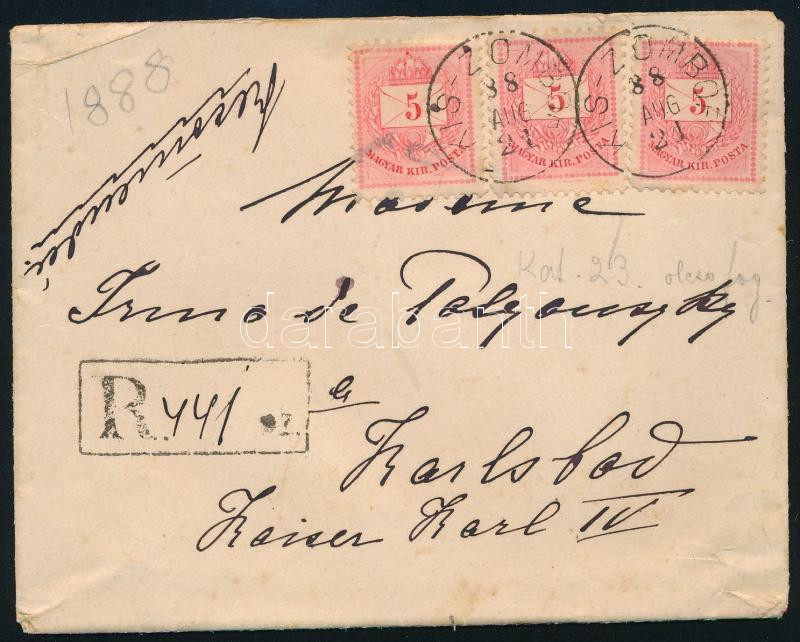 1888
Recommendée
5 5 5
MAGYAR KIR. POSTA MAGYAR KIR. POSTA MAGYAR KIR. POSTA
KIS-ZOMBOR 88 AUG 21
KIS-ZOMBOR 88 AUG 21
Madame
Kat. 23. olcsó fog.
Irma de
darabanth
R. 441 sz.
a
Karlsbad
Kaiser Karl IV